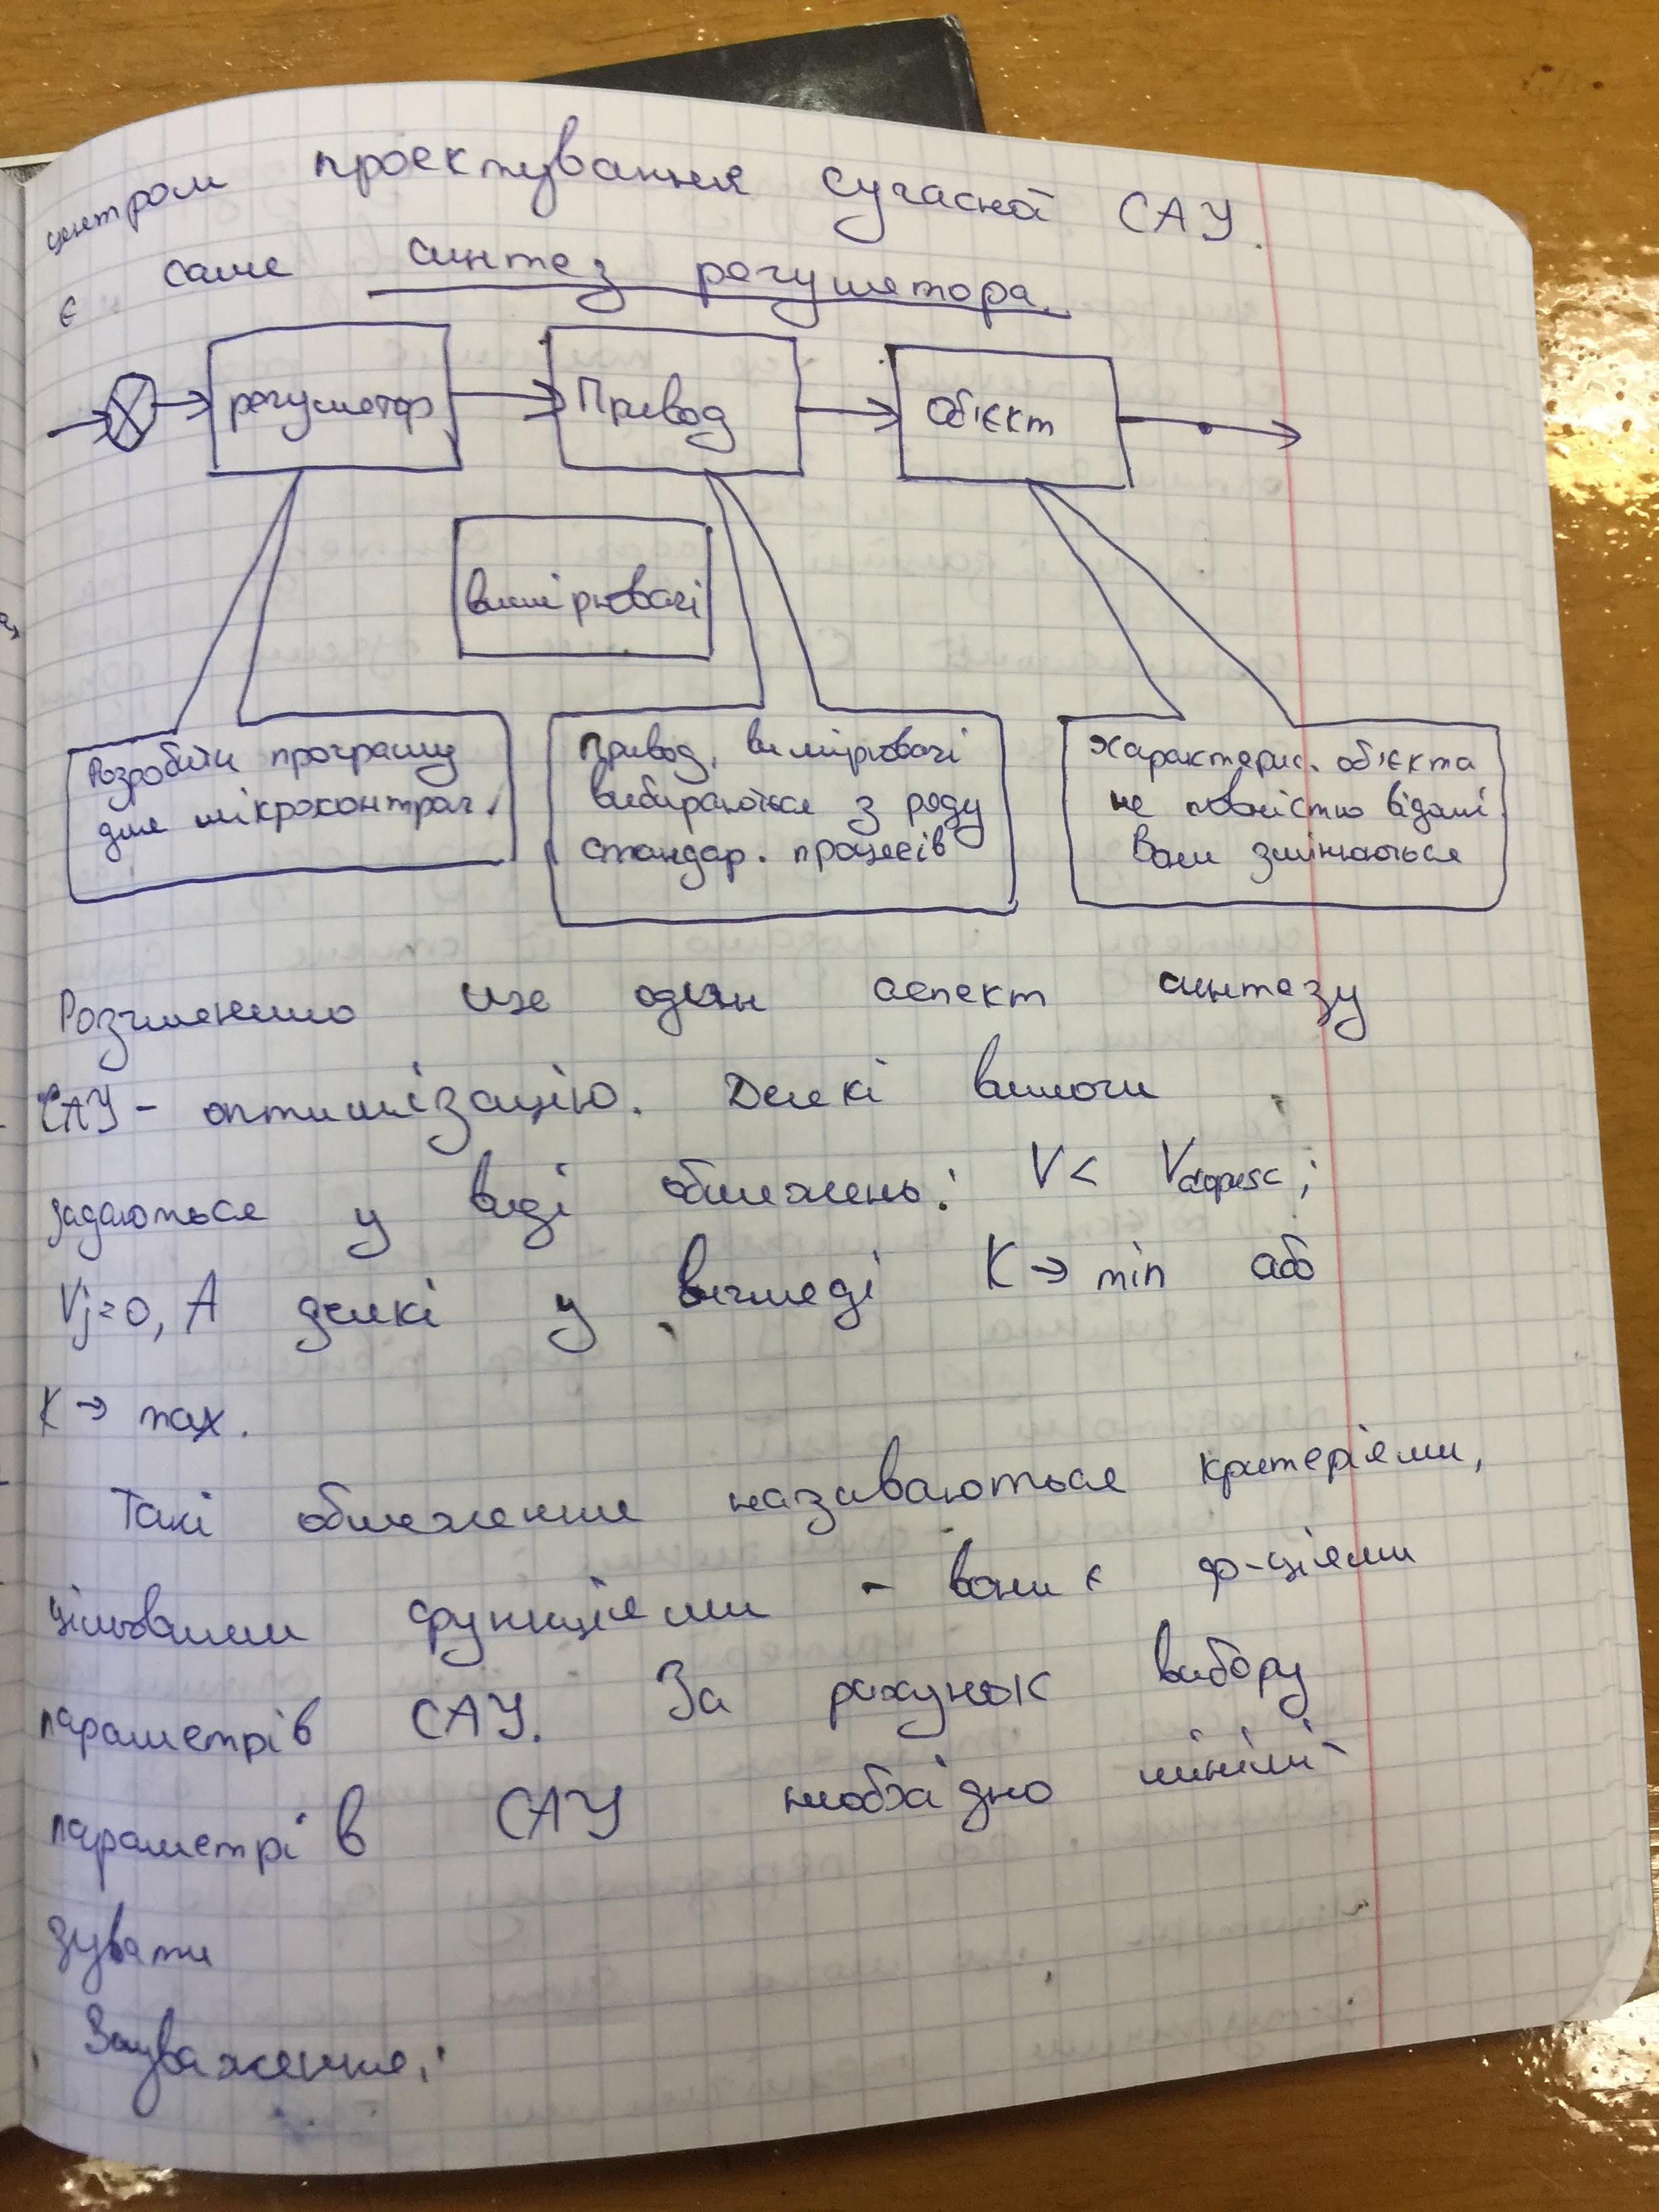 центром проектування сучасної САУ.
є саме синтез регулятора.
регулятор
Привод
Об'єкт
вимірювачі
Розробити програму
для мікроконтрол.
Привод, вимірювачі
вибираються з ряду
стандар. процесів
Характерис. об'єкта
не повністю відомі.
Вони змінюються
Розглянемо ще один аспект синтезу
САУ - оптимізацію. Деякі вимоги
задаються у виді обмежень: V <
Vj=0, А деякі у вигляді K → min або
K → max.
Такі обмеження називаються критеріями,
цільовими функціями - вони є ф-ціями
параметрів САУ. За рахунок вибору
параметрів САУ необхідно мінімі-
зувати
Зауваження: